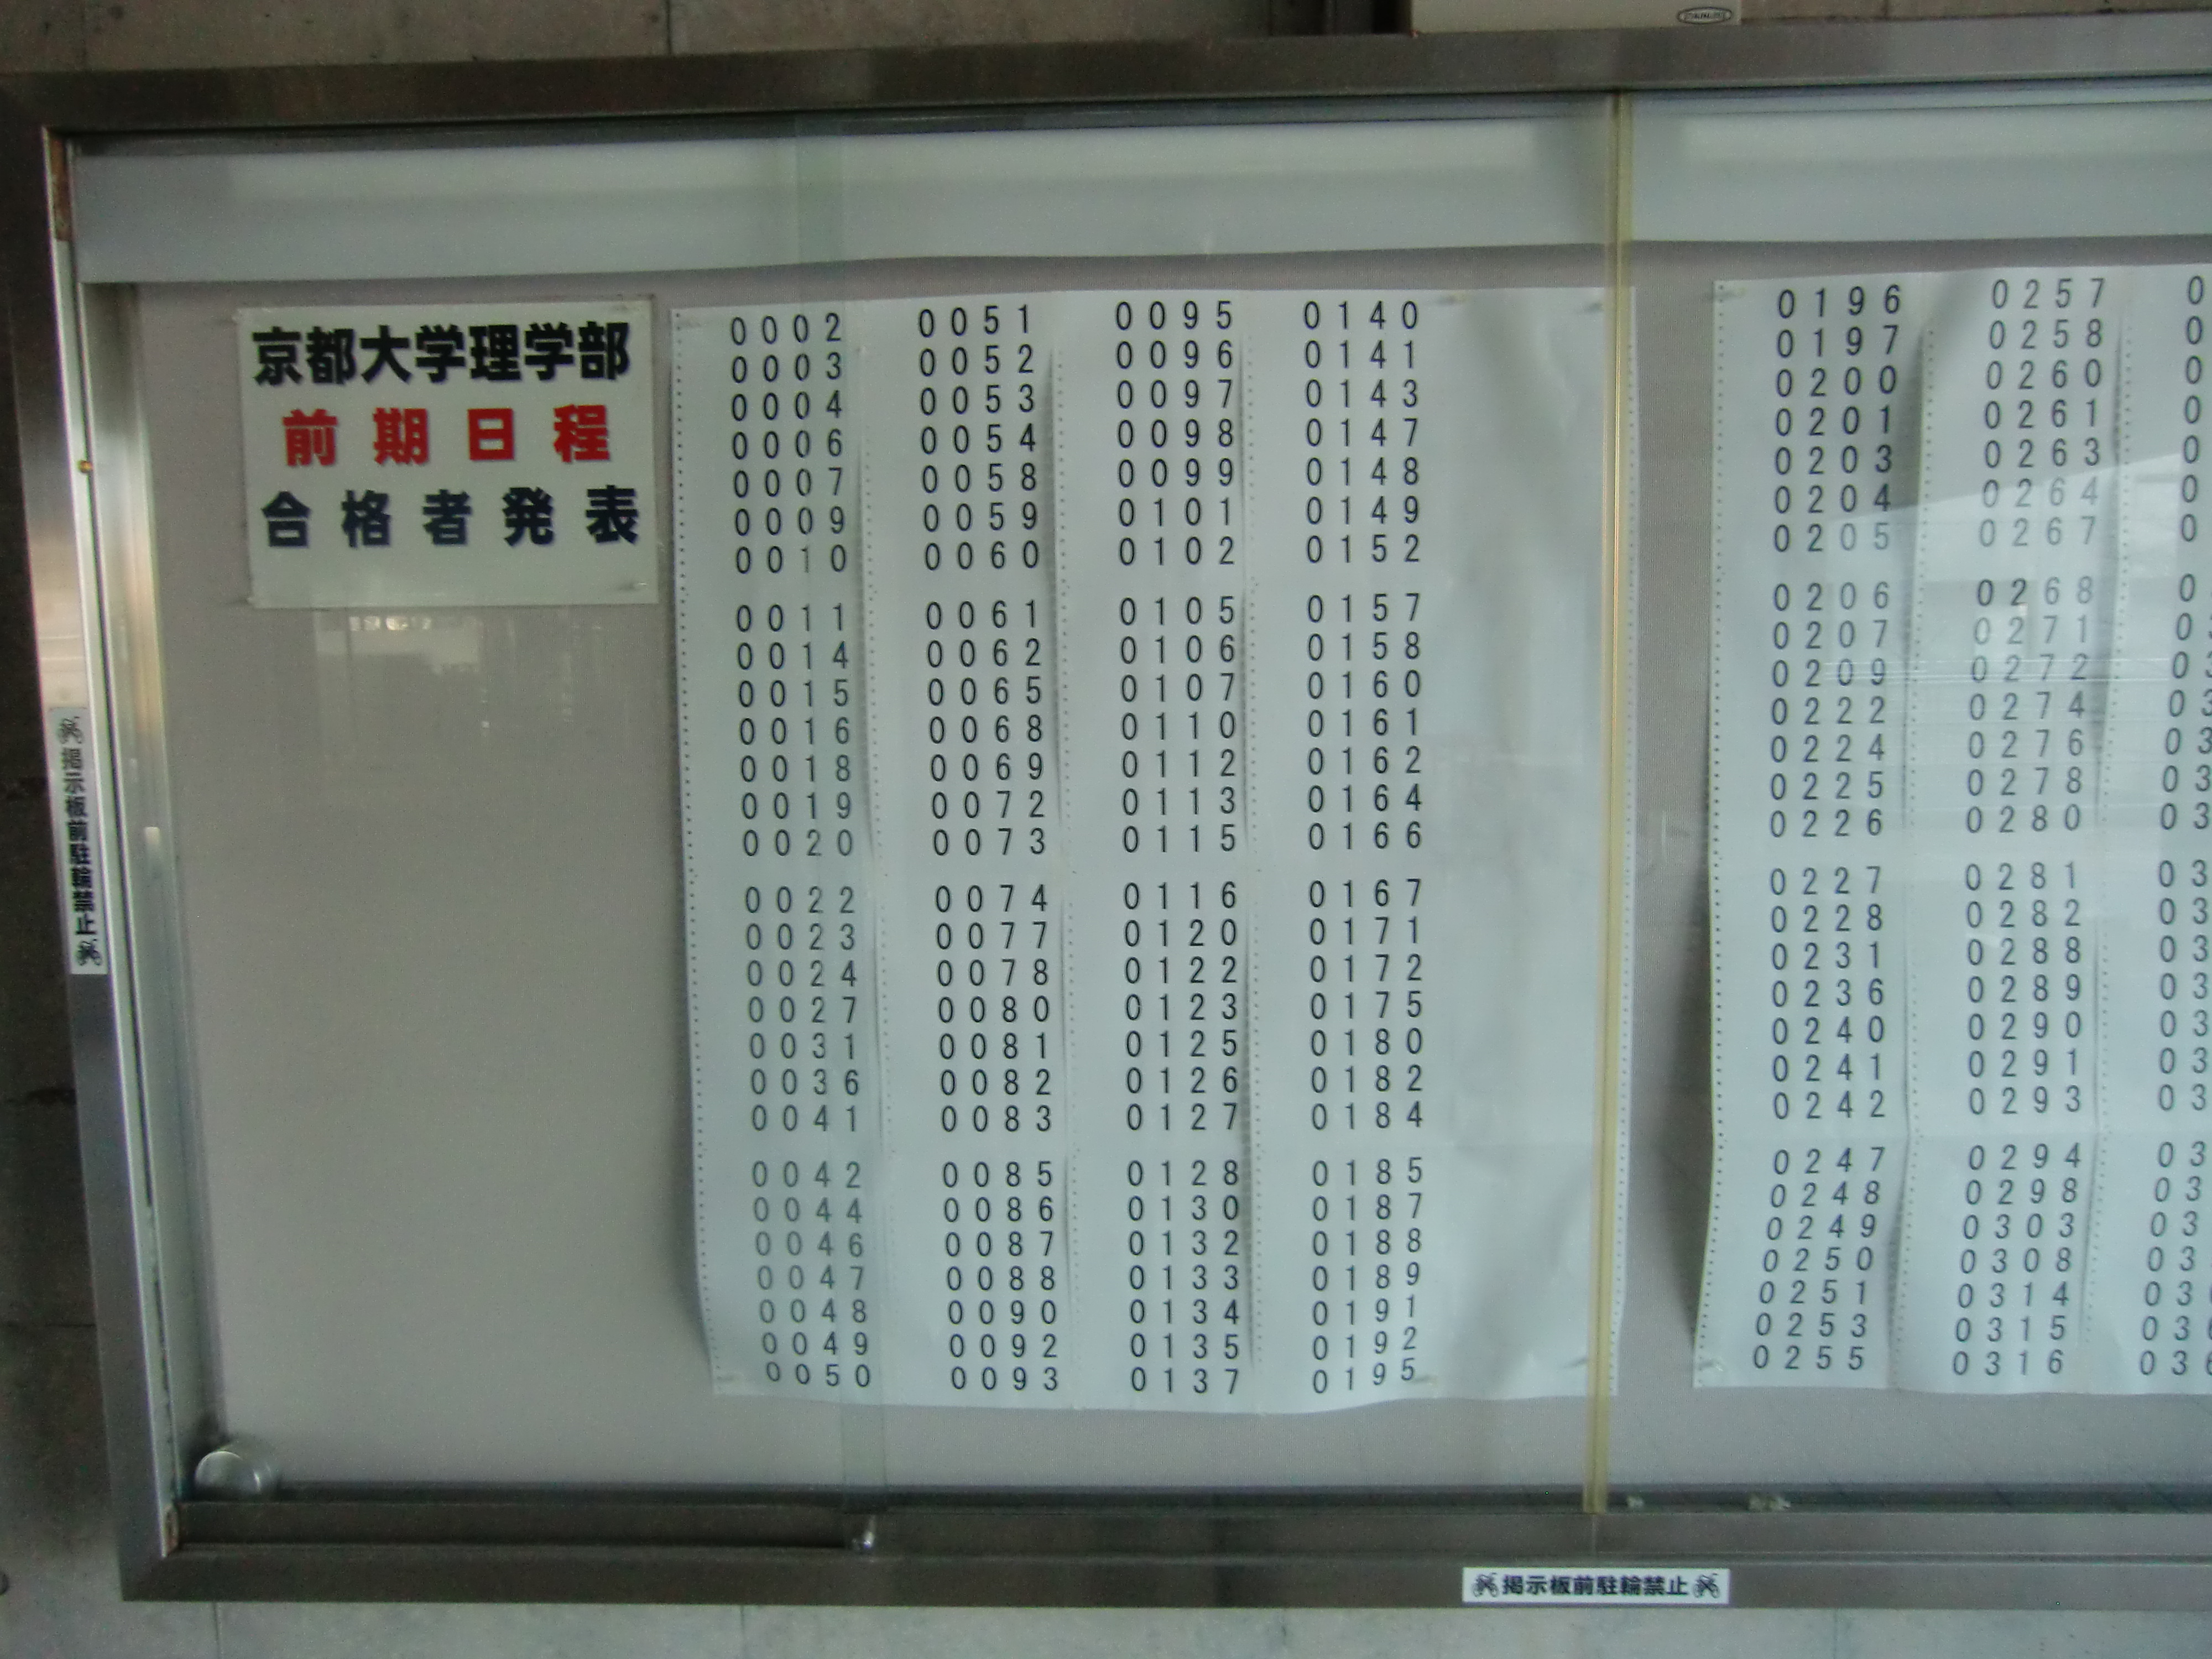 京都大学理学部
前期日程
合格者発表
0002
0003
0004
0006
0007
0009
0010
0011
0014
0015
0016
0018
0019
0020
0022
0023
0024
0027
0031
0036
0041
0042
0044
0046
0047
0048
0049
0050
0051
0052
0053
0054
0058
0059
0060
0061
0062
0065
0068
0069
0072
0073
0074
0077
0078
0080
0081
0082
0083
0085
0086
0087
0088
0090
0092
0093
0095
0096
0097
0098
0099
0101
0102
0105
0106
0107
0110
0112
0113
0115
0116
0120
0122
0123
0125
0126
0127
0128
0130
0132
0133
0134
0135
0137
0140
0141
0143
0147
0148
0149
0152
0157
0158
0160
0161
0162
0164
0166
0167
0171
0172
0175
0180
0182
0184
0185
0187
0188
0189
0191
0192
0195
0196
0197
0200
0201
0203
0204
0205
0206
0207
0209
0222
0224
0225
0226
0227
0228
0231
0236
0240
0241
0242
0247
0248
0249
0250
0251
0253
0255
0257
0258
0260
0261
0263
0264
0267
0268
0271
0272
0274
0276
0278
0280
0281
0282
0288
0289
0290
0291
0293
0294
0298
0303
0308
0314
0315
0316
掲示板前駐輪禁止
掲示板前駐輪禁止